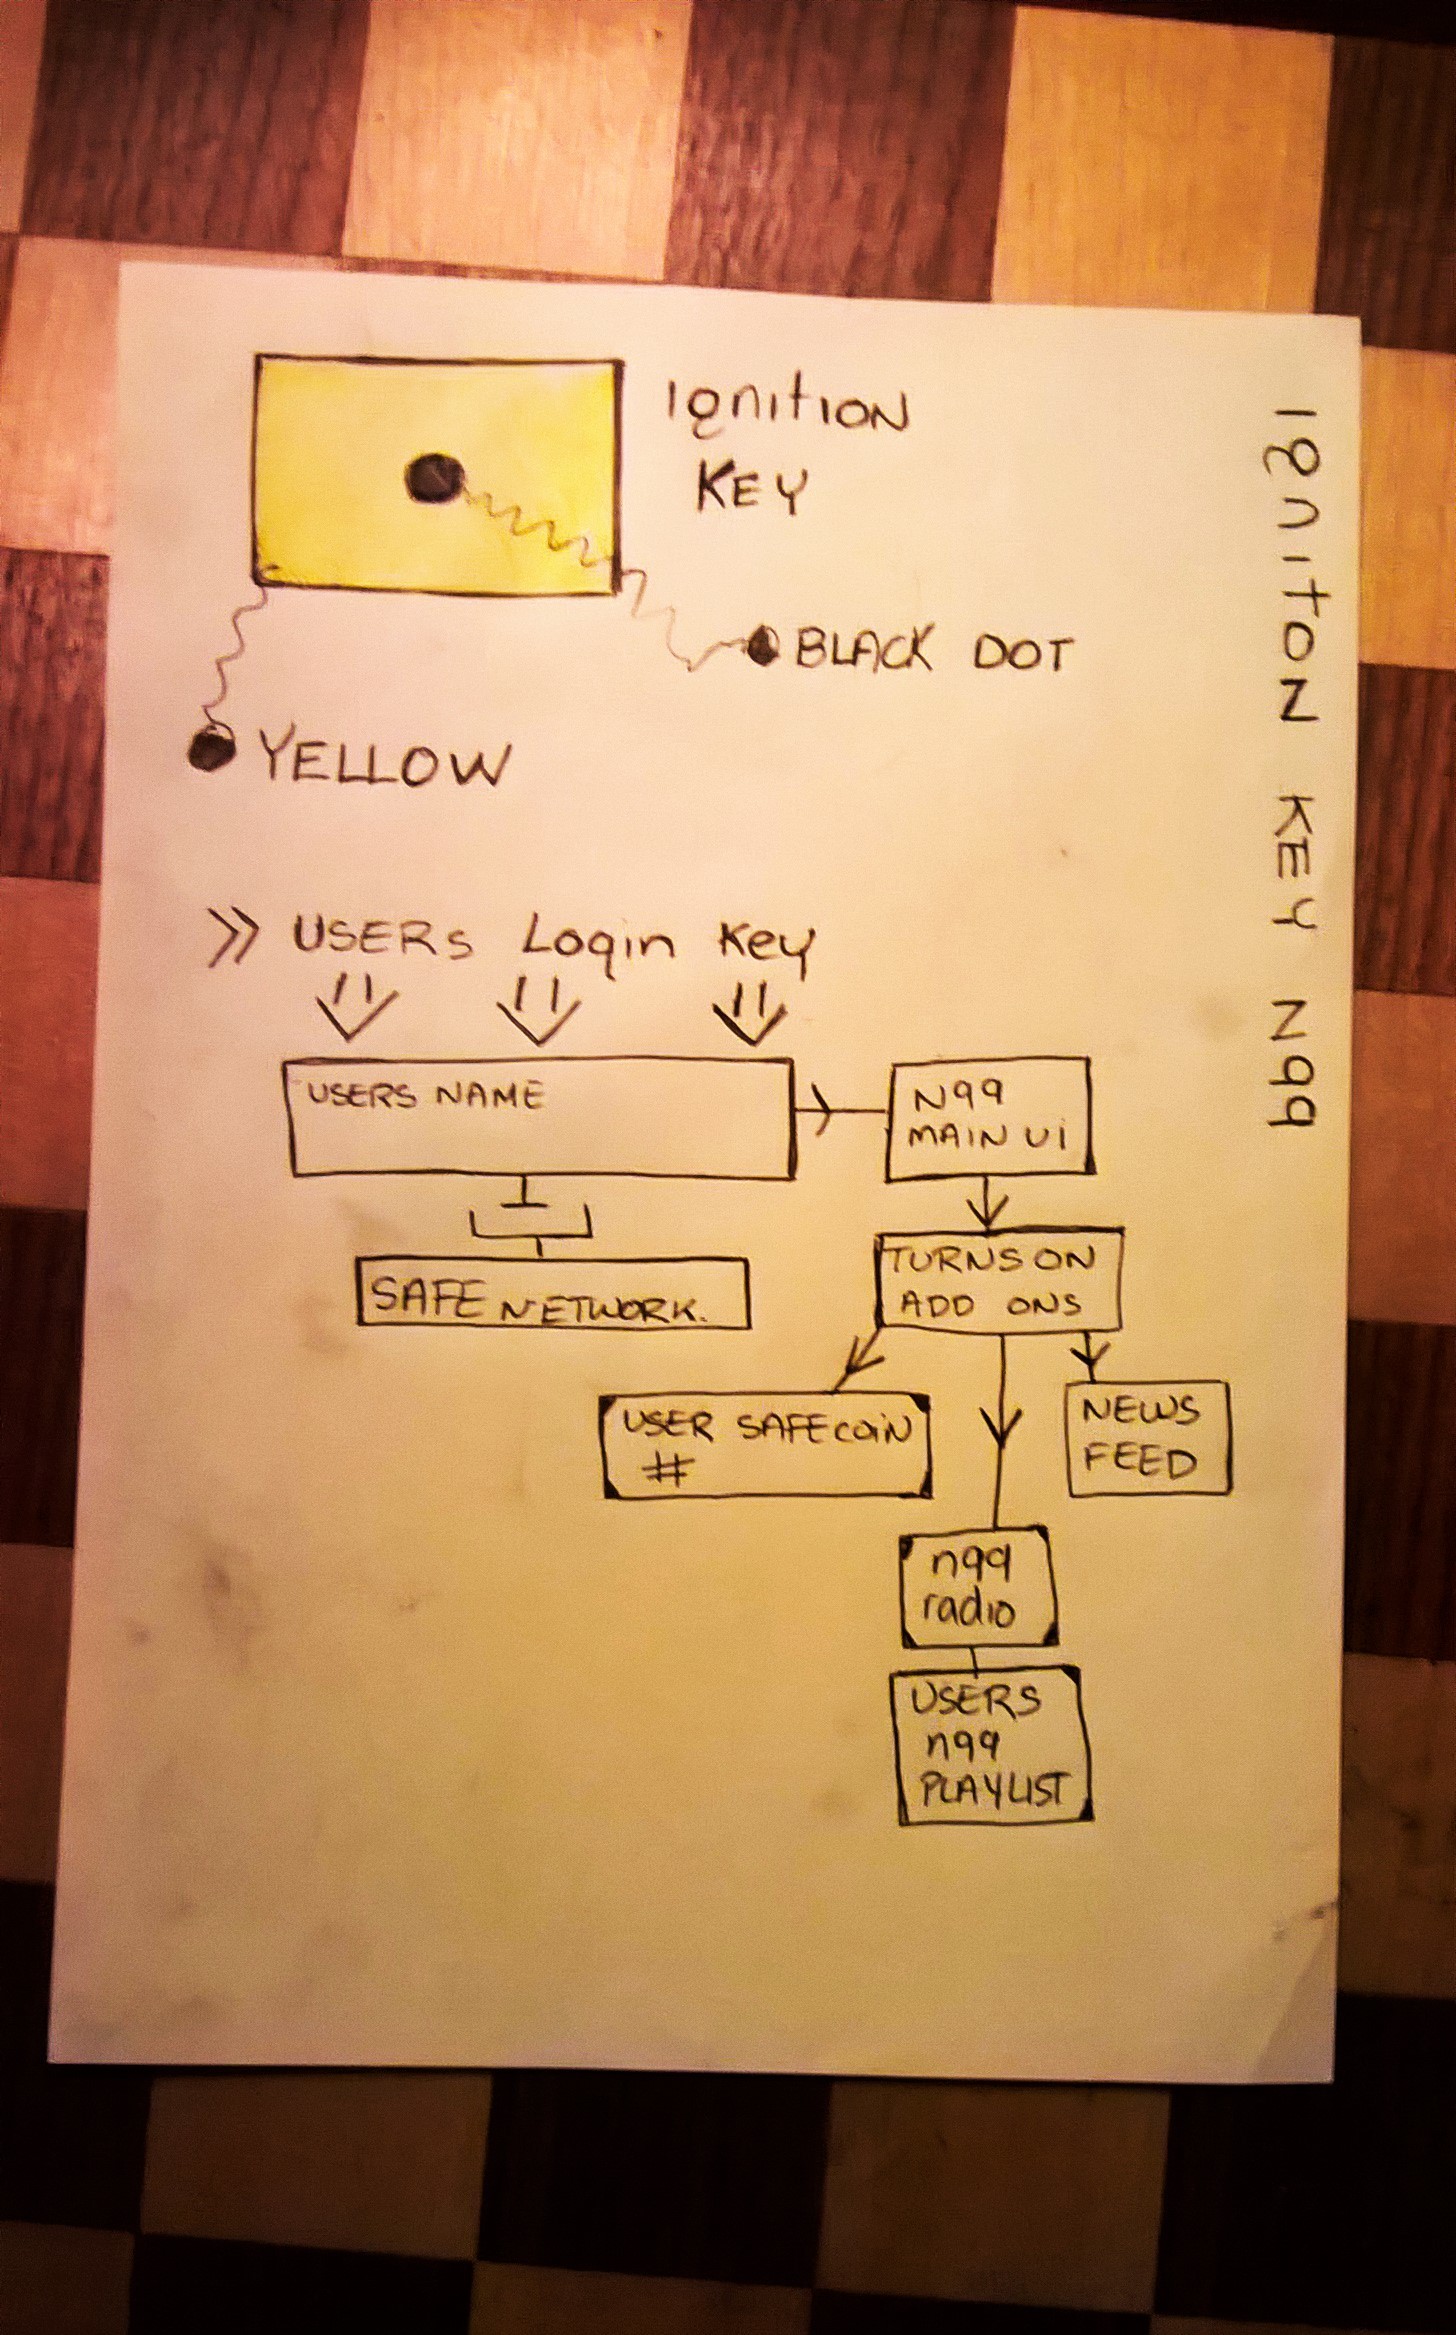 Ignition
KEY
BLACK DOT
YELLOW
>> USERS Login Key
USERS NAME
N99
MAIN UI
SAFE NETWORK.
TURNS ON
ADD ONS
USER SAFECOIN
#
NEWS
FEED
n99
radio
USERS
n99
PLAYLIST
IgnITON KEY N99